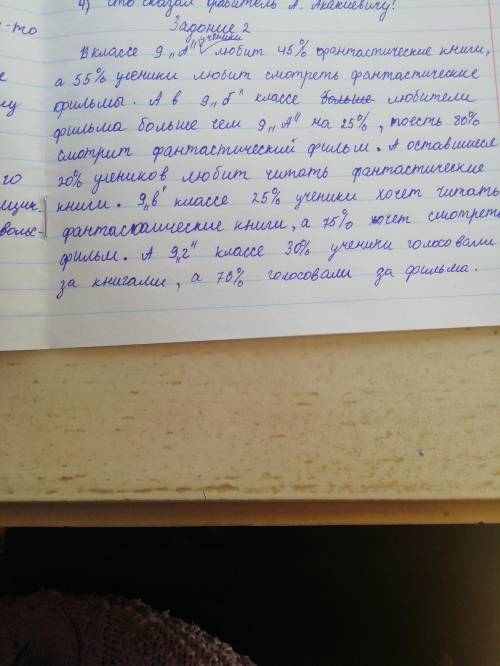 4) Что сказал грабитель А. Акакиевичу?
Задание 2
ученики
В классе 9 „А" любит 45% фантастические книги,
а 55% ученики любит смотреть фантастические
фильмы. А в 9 „б" классе больше любители
фильма больше чем 9 „А" на 25%, тоесть 80%
смотрит фантастический фильм. А оставшиеся
20% учеников любит читать фантастические
книги. 9 „в" классе 25% ученики хочет читать
фантастические книги, а 75% хочет смотреть
фильм. А 9 „г" классе 30% ученики голосовали
за книгами, а 70% голосовали за фильма.
-то
го
щик.
вольс-